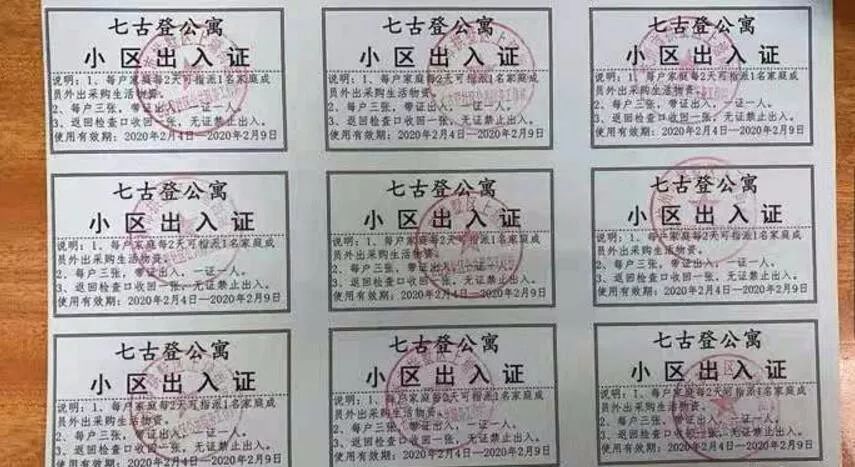 七古登公寓
小区出入证
说明：1、每户家庭每2天可指派1名家庭成
员外出采购生活物资。
2、每户三张，带证出入，一证一人。
3、返回检查口收回一张，无证禁止出入。
使用有效期：2020年2月4日—2020年2月9日
七古登公寓
小区出入证
说明：1、每户家庭每2天可指派1名家庭成
员外出采购生活物资。
2、每户三张，带证出入，一证一人。
3、返回检查口收回一张，无证禁止出入。
使用有效期：2020年2月4日—2020年2月9日
七古登公寓
小区出入证
说明：1、每户家庭每2天可指派1名家庭成
员外出采购生活物资。
2、每户三张，带证出入，一证一人。
3、返回检查口收回一张，无证禁止出入。
使用有效期：2020年2月4日—2020年2月9日
七古登公寓
小区出入证
说明：1、每户家庭每2天可指派1名家庭成
员外出采购生活物资。
2、每户三张，带证出入，一证一人。
3、返回检查口收回一张，无证禁止出入。
使用有效期：2020年2月4日—2020年2月9日
七古登公寓
小区出入证
说明：1、每户家庭每2天可指派1名家庭成
员外出采购生活物资。
2、每户三张，带证出入，一证一人。
3、返回检查口收回一张，无证禁止出入。
使用有效期：2020年2月4日—2020年2月9日
七古登公寓
小区出入证
说明：1、每户家庭每2天可指派1名家庭成
员外出采购生活物资。
2、每户三张，带证出入，一证一人。
3、返回检查口收回一张，无证禁止出入。
使用有效期：2020年2月4日—2020年2月9日
七古登公寓
小区出入证
说明：1、每户家庭每2天可指派1名家庭成
员外出采购生活物资。
2、每户三张，带证出入，一证一人。
3、返回检查口收回一张，无证禁止出入。
使用有效期：2020年2月4日—2020年2月9日
七古登公寓
小区出入证
说明：1、每户家庭每2天可指派1名家庭成
员外出采购生活物资。
2、每户三张，带证出入，一证一人。
3、返回检查口收回一张，无证禁止出入。
使用有效期：2020年2月4日—2020年2月9日
七古登公寓
小区出入证
说明：1、每户家庭每2天可指派1名家庭成
员外出采购生活物资。
2、每户三张，带证出入，一证一人。
3、返回检查口收回一张，无证禁止出入。
使用有效期：2020年2月4日—2020年2月9日